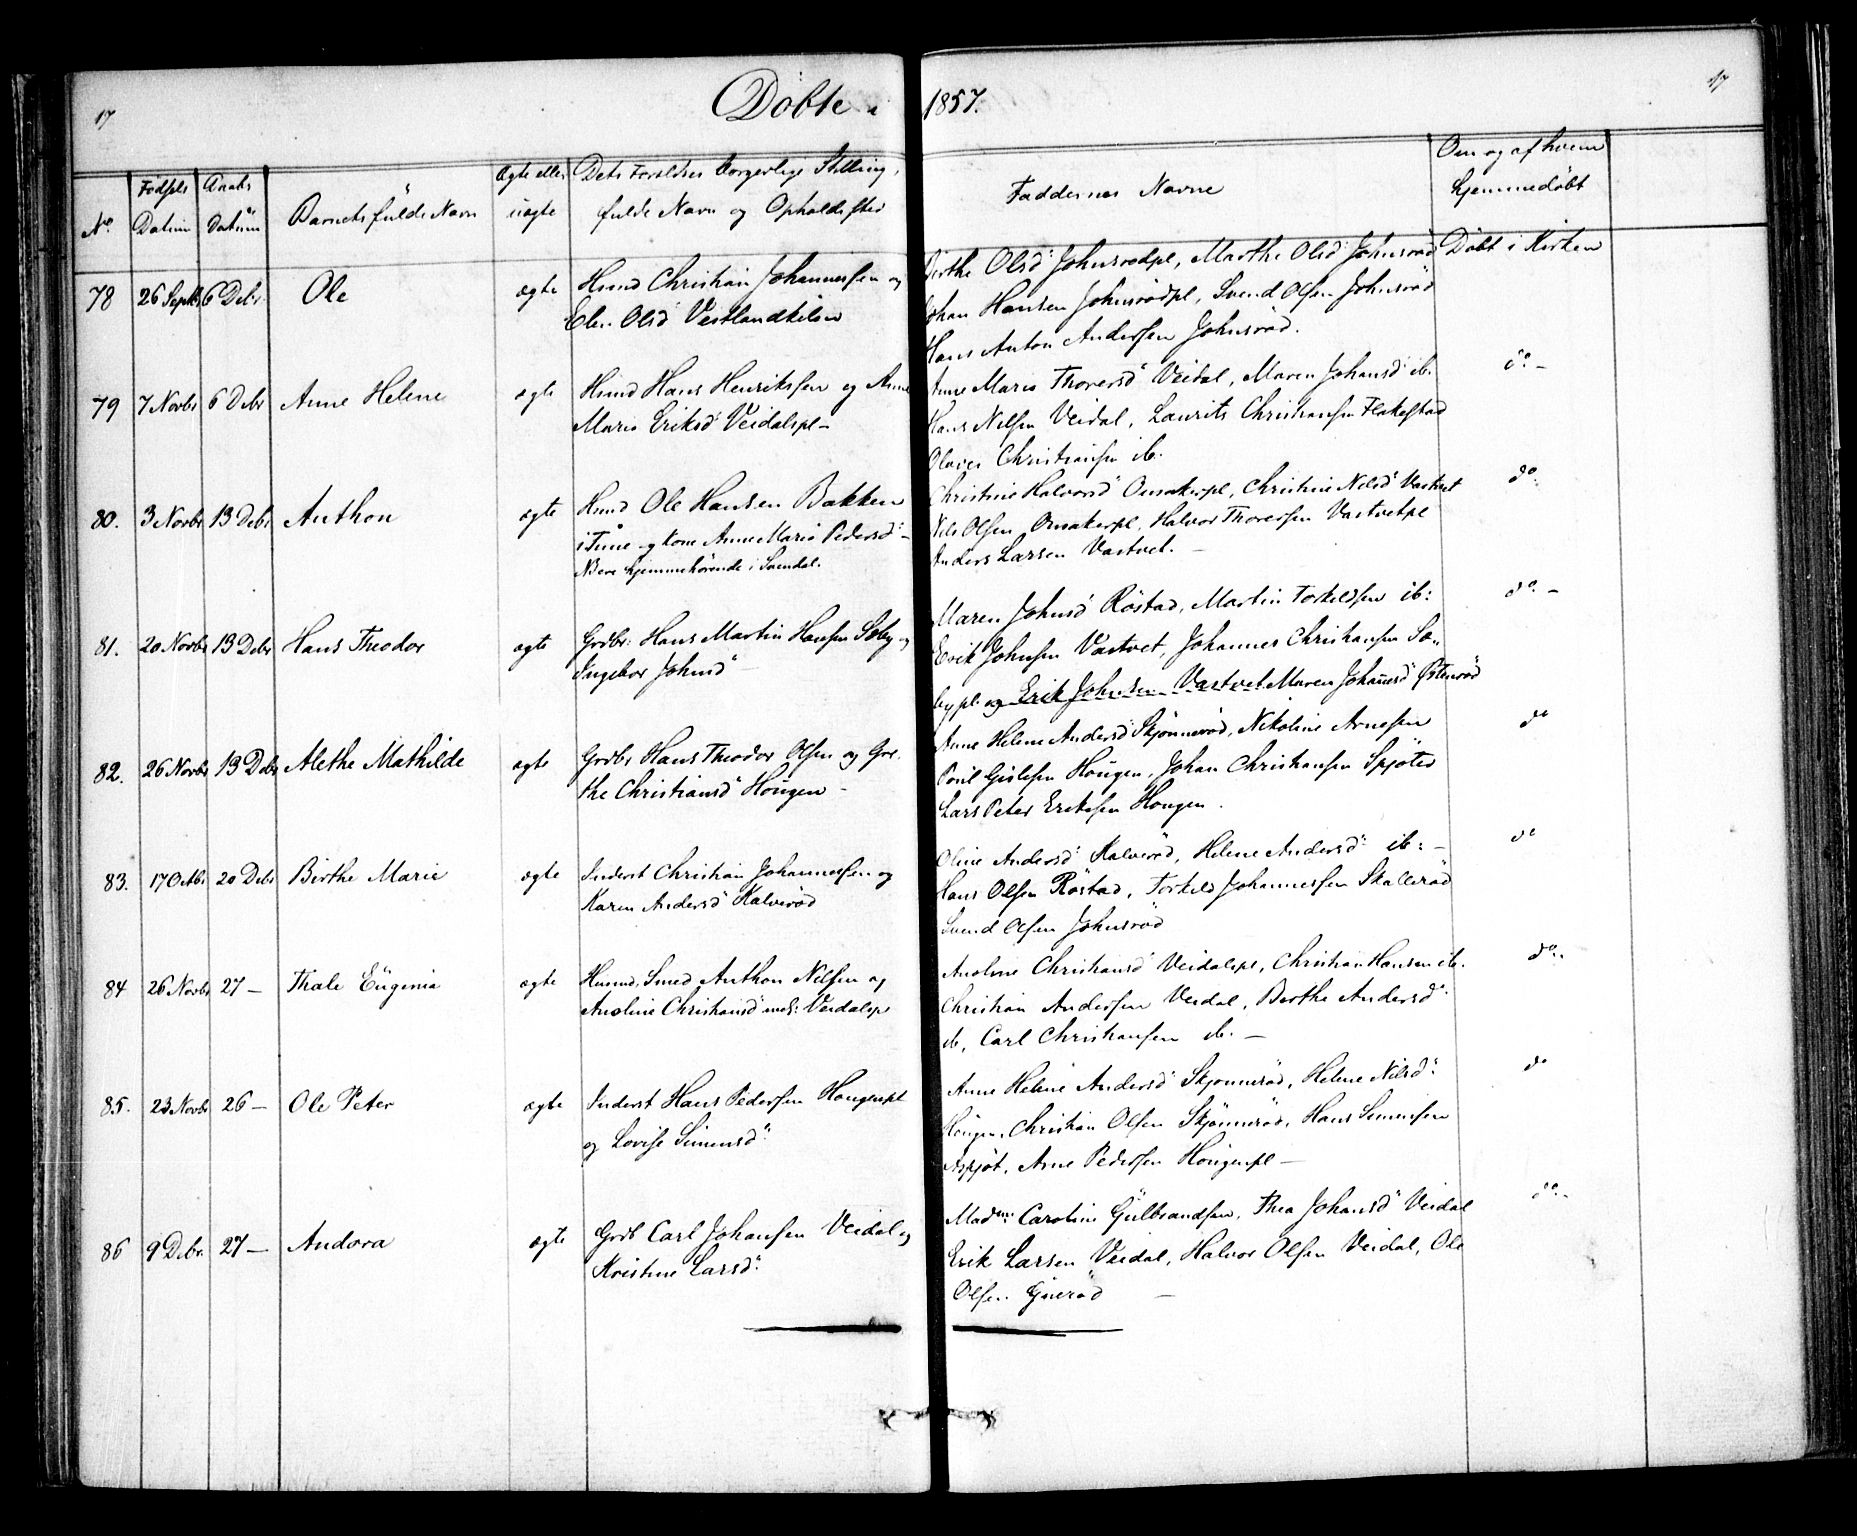 17 Døbte i 1857. 17
No Fødsels Datum Daabs Datum Barnets fulde Navn Ægte eller uægte Dets Forældres borgerlige Stilling, fulde Navn og Opholdssted Faddernes Navne Om og af hvem hjemmedøbt
78 26 Septbr 6 Debr Ole ægte Husmd Christian Johannesen og
Olsd Vestlandkilen
Birthe Olsd Johnsrødpl, Marthe Olsd Johnsrød Døbt i Kirken
Johan Hansen Johnsrødpl, Svend Olsen Johnsrød
Hans Anton Andersen Johnsrød.
79 7 Novbr 6 Debr Anne Helene ægte Husmd Hans Henriksen og Anne
Maria Eriksd Veidalspl –
Anne Maria Thoresd Veidal, Maren Johansd ib. do –
Hans Nilsen Veidal, Laurits Christiansen Flakestad
Christiansen ib.
80. 3 Novbr 13 Debr Anthon ægte Husmd Ole Hansen Bakken
i Tune og Kone Anne Maria Pedersd –
hjemmehørende i
Christine Halvorsd Omakerpl, Christine Nilsd Vastvet do.
Nils Olsen Omakerpl, Halvor Thoresen Vastvetpl
Anders Larsen Vastvet. –
81. 20 Novbr 13 Debr Hans Theodor ægte Grdbr. Hans Martin Hansen Soby og
Ingebor Johnsd –
Maren Johnsd Röstad, Martin Torkildsen ib: do. –
Erik Johnsen Vastvet, Johannes Christiansen So„
bypl og Erik Johnsen Vastvet Maren Johannesd Østenrød
82. 26 Novbr 13 Debr Alethe Mathilde ægte Grdbr Hans Theodor Olsen og Gre„
the Christiansd Hougen –
Anne Helene Andersd Skjönnerød, Nikoline Arnesen do
Poul Gislesen Hougen, Johan Christiansen Spjøted
Lars Peter Eriksen Hougen.
83. 17 Octbr 20 Debr Birthe Marie ægte Inderst Christian Johannesen og
Karen Andersd Kalverød
Oline Andersd Kalverød, Helene Andersd ib: – do
Hans Olsen Röstad, Torkild Johannessen Skallerød
Svend Olsen Johnsrød
84 26 Novbr 27 – Thale Eugenia ægte Husmd, Smed Anthon Nilsen og
Anoline Christiansd Veidalspl
Anoline Christiansd Veidalspl, Christian Hansen ib. do.
Christian Andersen Veidal, Berthe Andersd
ib, Carl Christiansen ib. –
85. 23 Novbr 26 – Ole Peter ægte Inderst Hans Pedersen Hougenpl
og Lovise Simensd
Anne Helene Andersd Skjønnerød, Helene Nilsd do
Hougen, Christian Olsen Skjönnerød, Hans Simensen
Aspjøt, Arne Pedersen Hougenpl –
86 9 Debr. 27 – Andora ægte Grdb Carl Johansen Veidal og
Kristine Larsd
Madme Caroline Gulbrandsen, Thea Johansd Veidal do. –
Erik Larsen Veidal, Halvor Olsen Veidal, Ole
Olsen –